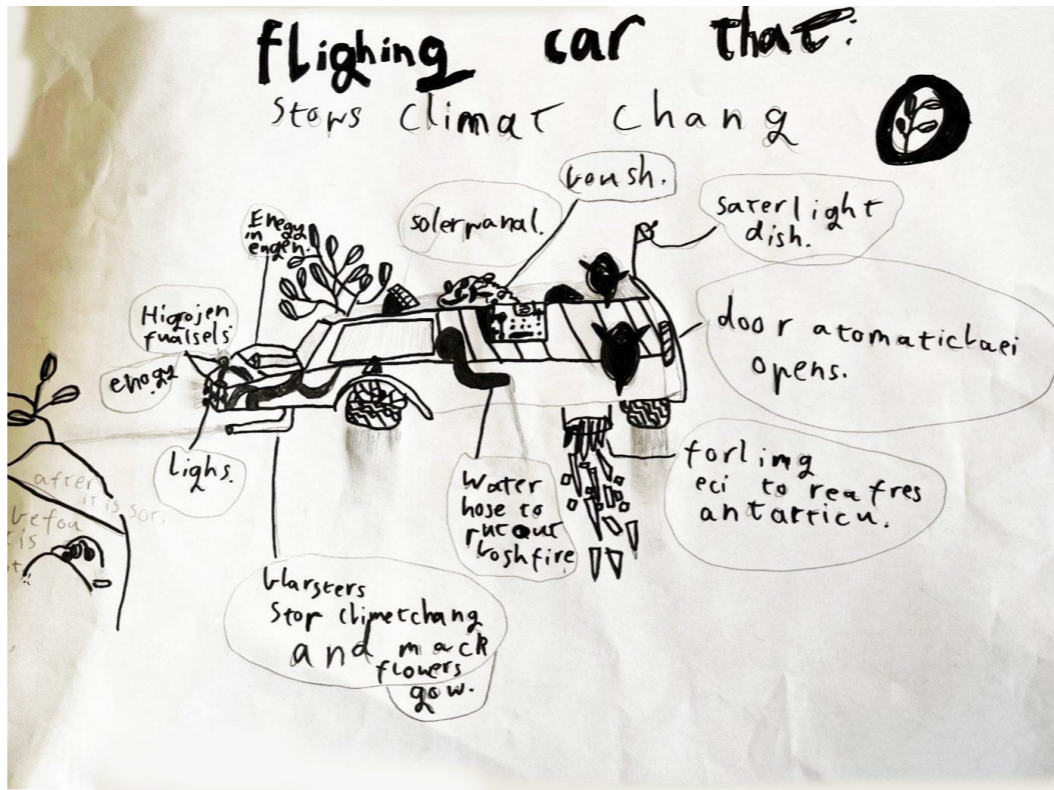 flighing car that:
stops climat chang
boush.
solerpanal.
saterlight
dish.
Enegy
in
engen.
Higrojen
fualsels
enogy
door atomaticlaei
opens.
lighs.
water
hose to
put out
boshfire
forling
eci to reafres
antarticu.
after
it is sor.
befou
is
blarsters
stop climetchang
and mack
flowers
gow.